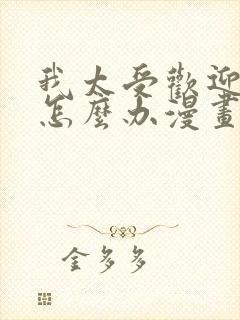 我太受歡迎
怎麼办漫畫
金多多